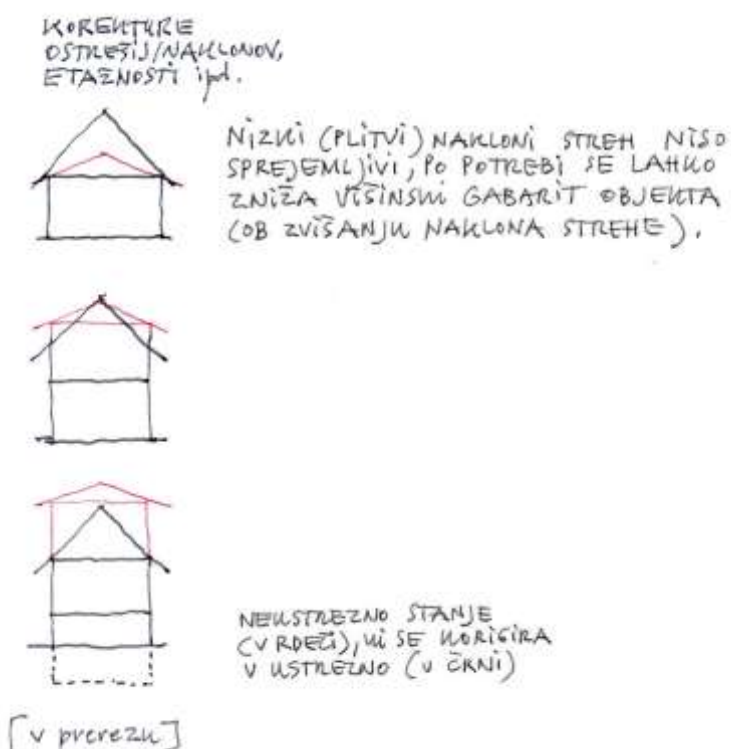 KOREKTURE
OSTREŠIJ/NAKLONOV,
ETAŽNOSTI ipd.
NIZKI (PLITVI) NAKLONI STREH NISO
SPREJEMLJIVI, PO POTREBI SE LAHKO
ZNIŽA VIŠINSKI GABARIT OBJEKTA
(OB ZVIŠANJU NAKLONA STREHE).
NEUSTREZNO STANJE
(V RDEČI), KI SE KORIGIRA
V USTREZNO (V ČRNI)
[v prerezu]